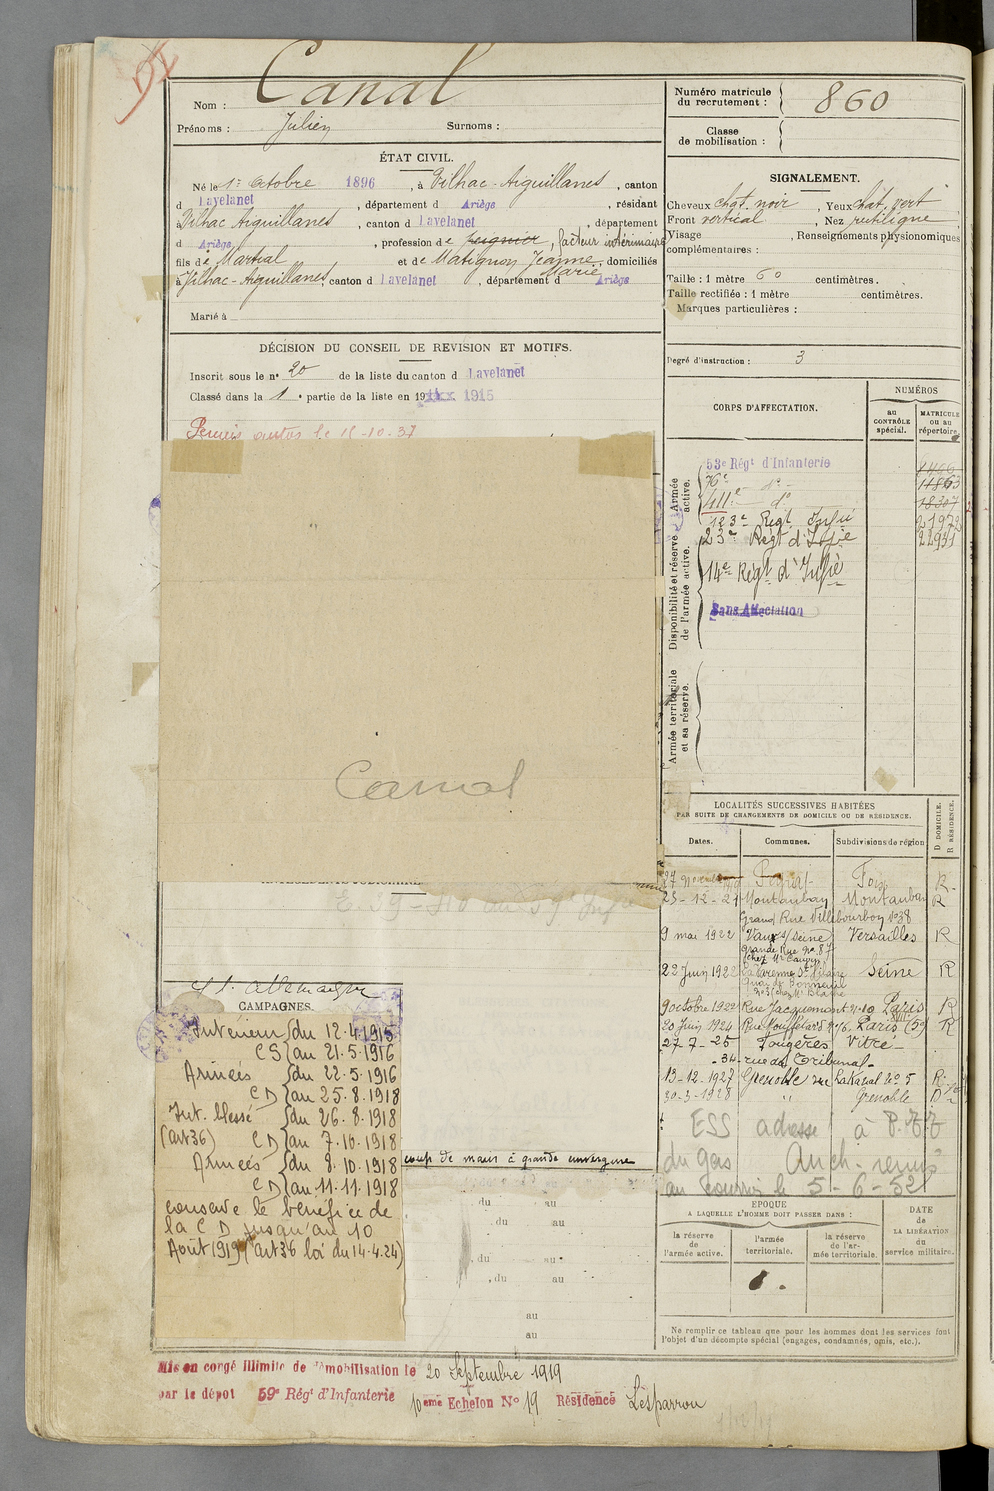 Nom : Canal
Prénoms : Julien Surnoms :
ÉTAT CIVIL.
Né le 1er Octobre 1896, à Vilhac-Aiguillanes, canton
d Lavelanet, département d Ariège, résidant
à Vilhac Aiguillanes, canton d Lavelanet, département
d Ariège, profession de peignier, facteur intérimaire
fils de Martial et de Matignon Jeanne Marie, domiciliés
à Vilhac-Aiguillanes, canton d Lavelanet, département d Ariège
Marié à
DÉCISION DU CONSEIL DE REVISION ET MOTIFS.
Inscrit sous le n° 20 de la liste du canton d Lavelanet
Classé dans la 1e partie de la liste en 19 1915
Permis autos le 15-10-37
Canal
CAMPAGNES.
Intérieur du 12.4.1915
CS au 21.5.1916
Armées du 22.5.1916
CD au 25.8.1918
Int. blessé du 26.8.1918
(art 36) CD au 7.10.1918
Armées du 8.10.1918
CD au 11.11.1918
conserve le bénéfice de
la C D jusqu'au 10
Août 1919 (art 36 loi du 14.4.24)
coup de main à grande envergure
du au
du au
du au
du au
au
au
Mis en congé illimité de démobilisation le 20 Septembre 1919
par le dépôt 59e Régt d'Infanterie 10ème Echelon N° 19 Résidence Lesparrou
Numéro matricule
du recrutement : 860
Classe
de mobilisation :
SIGNALEMENT.
Cheveux chat. noir, Yeux chat. vert
Front vertical, Nez rectiligne
Visage , Renseignements physionomiques
complémentaires :
Taille : 1 mètre 60 centimètres.
Taille rectifiée : 1 mètre centimètres.
Marques particulières :
Degré d'instruction : 3
CORPS D'AFFECTATION.
NUMÉROS
au CONTRÔLE spécial.
MATRICULE ou au répertoire.
Armée active.
53e Régt d'Infanterie
76e - do - 11863
411e - do 18307
123e Régt Infie
23e Régt d'Infie 22931
Disponibilité et réserve de l'armée active.
14e Régt d'Infie
Sans Affectation
Armée territoriale et sa réserve.
LOCALITÉS SUCCESSIVES HABITÉES
PAR SUITE DE CHANGEMENTS DE DOMICILE OU DE RÉSIDENCE.
Dates. Communes. Subdivisions de région D DOMICILE. R RÉSIDENCE.
Foix R.
25-12-21 Montauban Montauban R
Grand Rue Villebourbon n° 38
9 mai 1922 Vaux s/ Seine Versailles R
Grande Rue No 87
22 Juin 1922 La Varenne St Hilaire Seine R
Quai de Bonneuil
9 octobre 1922 Rue Jacquemont n° 10 Paris R
20 Juin 1924 Rue Mouffetard n° 76 Paris (5e) R
27-7-25 Fougères Vitré
34 rue du Tribunal
13-12-1927 Grenoble rue Lakanal n° 5 R.
30-3-1928 " Grenoble D
ESS adresse à P.
du gas Auch
au courrier le 5-6-52
EPOQUE
A LAQUELLE L'HOMME DOIT PASSER DANS :
la réserve de l'armée active.
l'armée territoriale.
la réserve de l'armée territoriale.
DATE de LA LIBÉRATION du service militaire.
Ne remplir ce tableau que pour les hommes dont les services font
l'objet d'un décompte spécial (engagés, condamnés, omis, etc.).